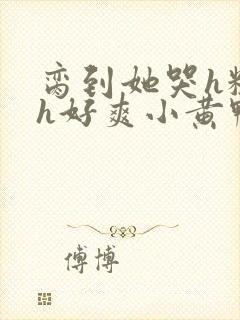 弯到她哭h粗
h好爽小黄鸭
傅博